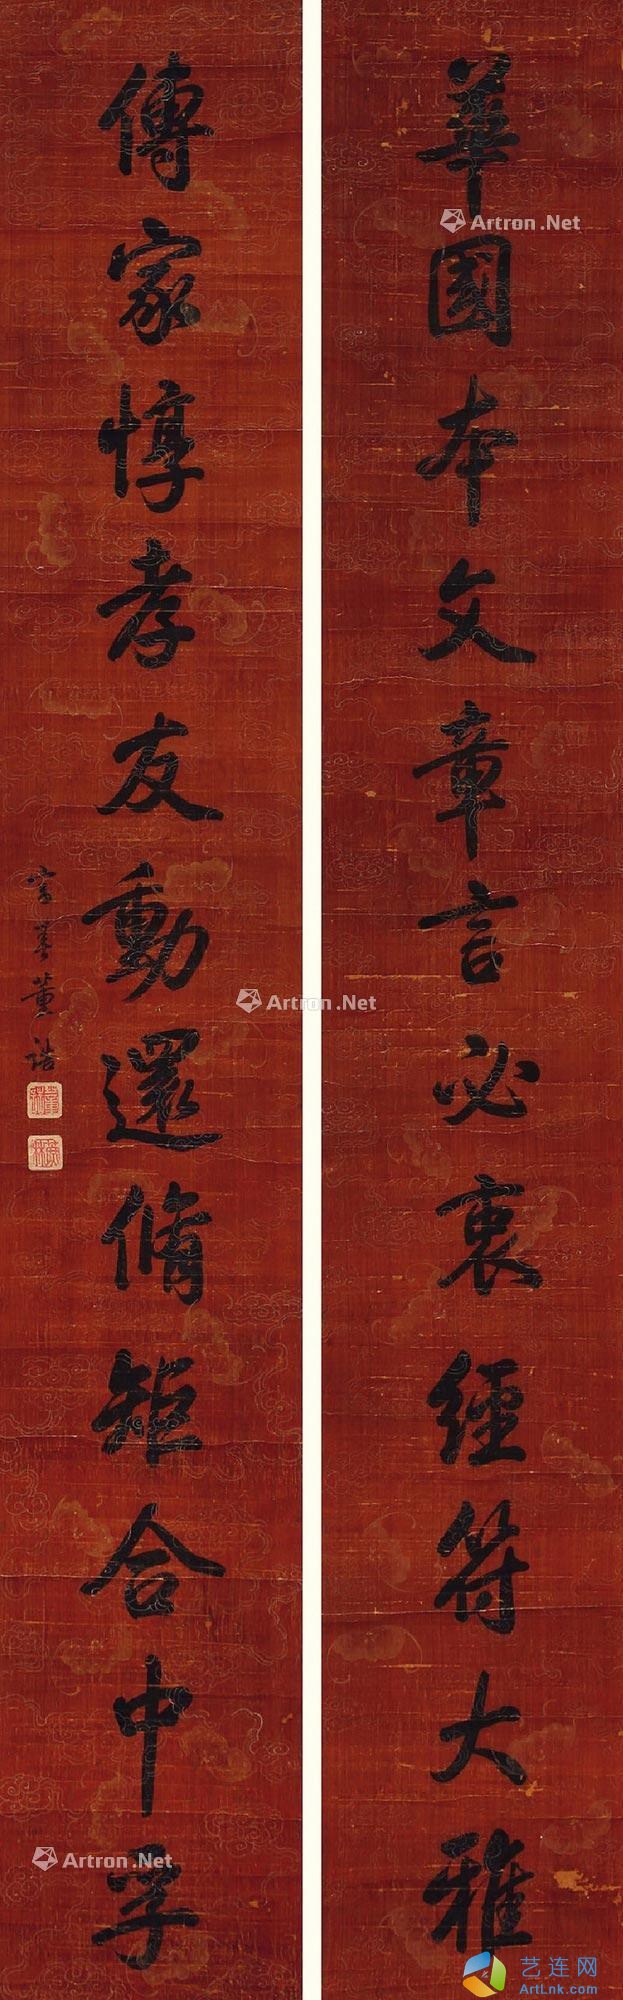 華國本文章言必衷經符大雅
傳家惇孝友動還脩矩合中孚
富春董誥
Artron.Net
Artron.Net
Artron.Net
艺连网
ArtLnk.com